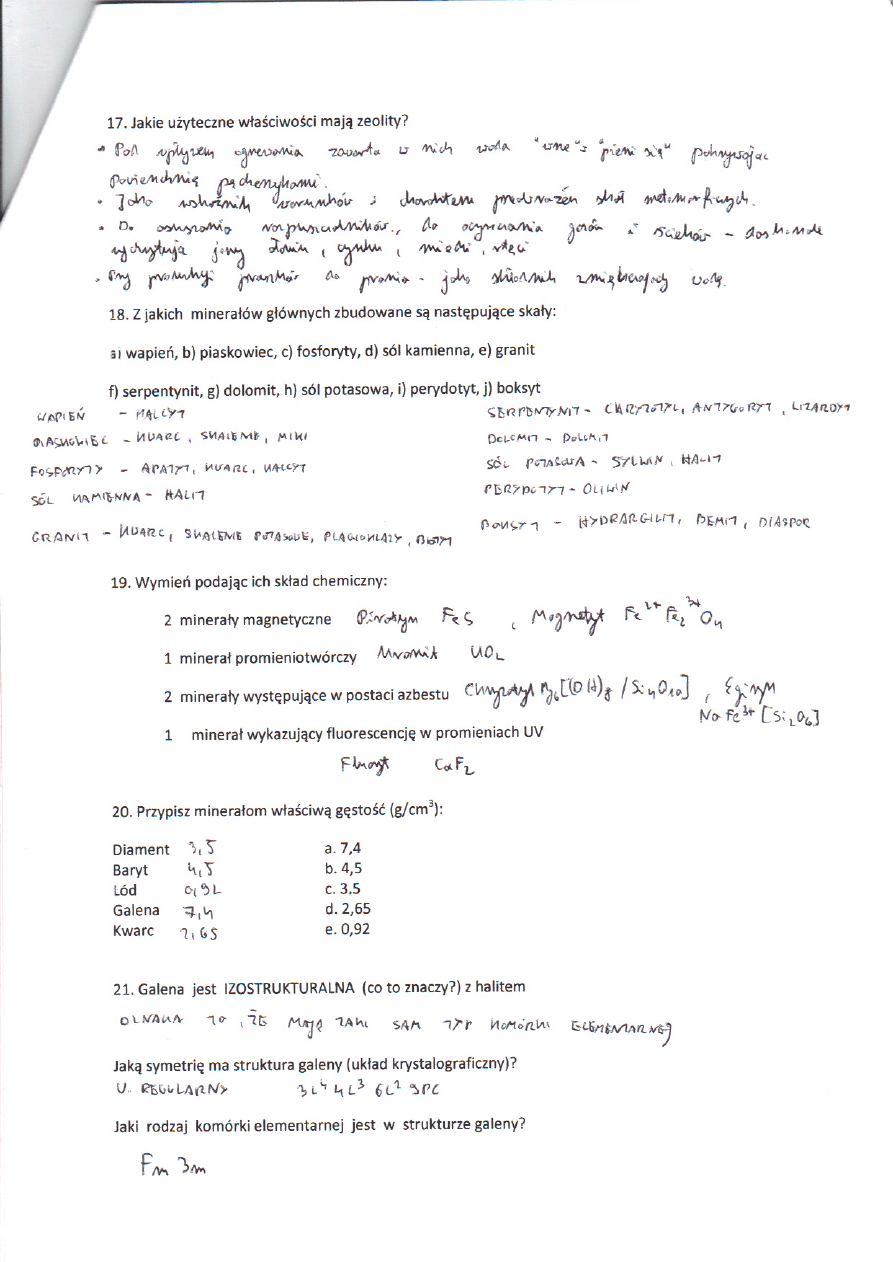 17. Jakie użyteczne właściwości mają zeolity?
• Pod wpływem ogrzewania zawarta w nich woda "wre" i "pieni się" pokrywając
powierzchnię pęcherzykami.
• Jako wskaźnik warunków i charakteru przeobrażeń skał metamorficznych.
• Do osuszania rozpuszczalników, do oczyszczania gazów i ścieków - doskonale
wychwytują jony ołowiu, cynku, miedzi, rtęci
• Przy produkcji proszków do prania - jako składnik zmiękczający wodę.
18. Z jakich minerałów głównych zbudowane są następujące skały:
a) wapień, b) piaskowiec, c) fosforyty, d) sól kamienna, e) granit
f) serpentynit, g) dolomit, h) sól potasowa, i) perydotyt, j) boksyt
WAPIEŃ - KALCYT
PIASKOWIEC - KWARC, SKALENIE, MIKI
FOSFORYTY - APATYT, KWARC, KALCYT
SÓL KAMIENNA - HALIT
GRANIT - KWARC, SKALENIE POTASOWE, PLAGIOKLAZY, BIOTYT
SERPENTYNIT - CHRYZOTYL, ANTYGORYT, LIZARDYT
DOLOMIT - DOLOMIT
SÓL POTASOWA - SYLWIN, HALIT
PERYDOTYT - OLIWIN
BOKSYT - HYDRARGILIT, BEMIT, DIASPOR
19. Wymień podając ich skład chemiczny:
2 minerały magnetyczne Pirotyn FeS, Magnetyt Fe²⁺Fe₂³⁺O₄
1 minerał promieniotwórczy Uraninit UO₂
2 minerały występujące w postaci azbestu Chryzotyl Mg₆[(OH)₈/Si₄O₁₀], Egiryn
NaFe³⁺[Si₂O₆]
1 minerał wykazujący fluorescencję w promieniach UV
Fluoryt CaF₂
20. Przypisz minerałom właściwą gęstość (g/cm³):
Diament 3,5 a. 7,4
Baryt 4,5 b. 4,5
Lód 0,92 c. 3.5
Galena 7,4 d. 2,65
Kwarc 2,65 e. 0,92
21. Galena jest IZOSTRUKTURALNA (co to znaczy?) z halitem
OZNACZA TO, ŻE MAJĄ TAKI SAM TYP KOMÓRKI ELEMENTARNEJ
Jaką symetrię ma struktura galeny (układ krystalograficzny)?
U. REGULARNY 3L⁴ 4L³ 6L² 9PC
Jaki rodzaj komórki elementarnej jest w strukturze galeny?
Fm3m